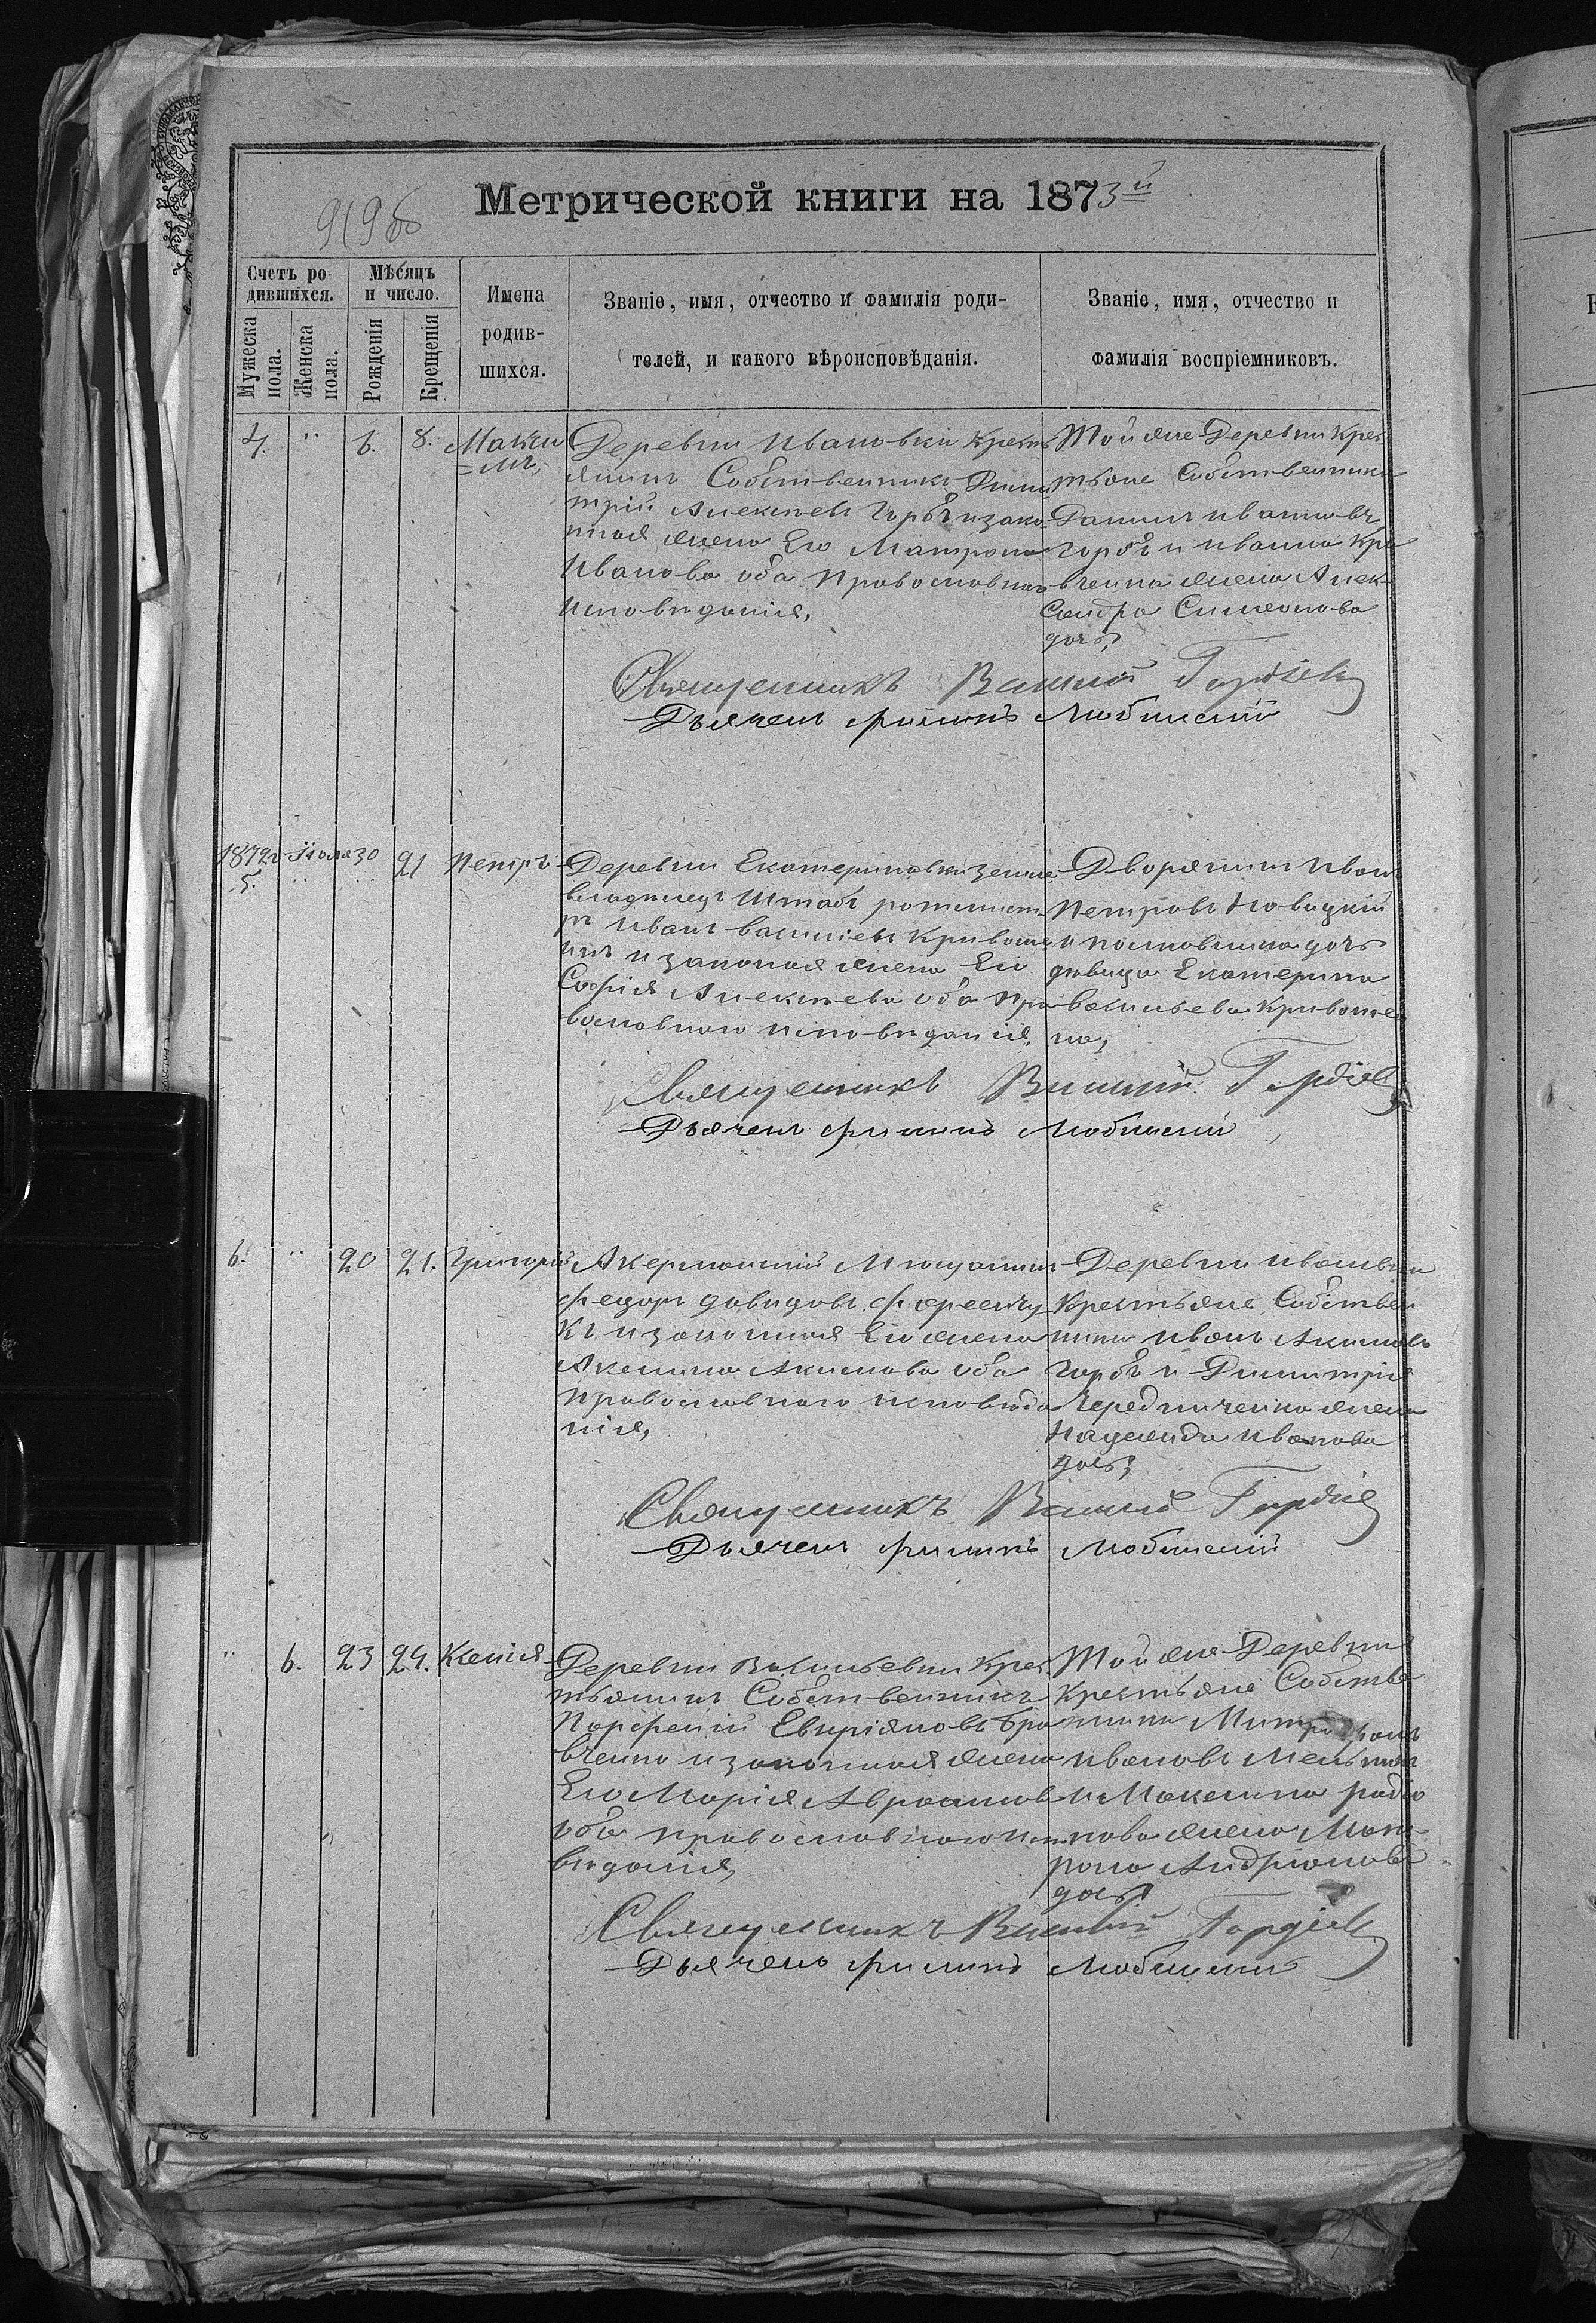 Метрической книги на 1873й
Счетъ родившихся.
Мужеска пола.
Женска пола.
Мѣсяцъ и число.
Рожденія
Крещенія
Имена родившихся.
Званіе, имя, отчество и фамилія роди-
телей, и какого вѣроисповѣданія.
Званіе, имя, отчество и
фамилія воспріемниковъ.
4. " 6. 8. Макси
=мъ,
Деревни Ивановки Крест
янинъ Собственникъ Дими
трій Алексѣевъ Горбъ и зако
нная жена Его Матрона
Иванова оба Православнаго
Исповѣданія,
Той же Деревни Крес
тьяне Собственники
Даніилъ Ивановъ
Горбъ и Ивана Кра
вченка жена Алек-
сандра Симеонова
дочь,
Священникъ Василій Гордіевъ
Дьячекъ Филипъ Любинскій
1872г. Іюля 30 21 Петръ
5. " "
Деревни Екатериновки земле
владѣлецъ Штабъ ротмист
ръ Иванъ Васильевъ Кривош
инъ и законная жена Его
Софія Алексѣева оба Пра
вославнаго исповѣданія,
Дворянинъ Иванъ
Петровъ Новицкій
и полковника дочь
дѣвица Екатерина
Васильева
на,
Священникъ Василій Гордіевъ
Дьячекъ Филипъ Любинскій
6. " 20 21. Григорій
Акерманскій Мѣщанинъ
Федоръ Давидовъ
къ и законная Его жена
Акимова оба
православнаго исповѣда
нія,
Деревни Ивановки
Крестьяне Собствен
ники Иванъ Акимовъ
Горбъ и Димитрія
Чередниченка жена
Надежда Иванова
дочь,
Священникъ Василій Гордіевъ
Дьячекъ Филипъ Любинскій
" 6. 23 24. Ксенія
Деревни Васильевки Крес
тьянинъ Собственникъ
Порфирій Кра
вченко и законная жена
Его Марія Авраамова
оба православнаго испо
вѣданія,
Той же Деревни
Крестьяне Собстве
нники Митрофанъ
Ивановъ Мельникъ
и Максима Радіо
нова жена Мат-
рона Андріанова
дочь
Священникъ Василій Гордіевъ
Дьячекъ Филипъ Любинскій